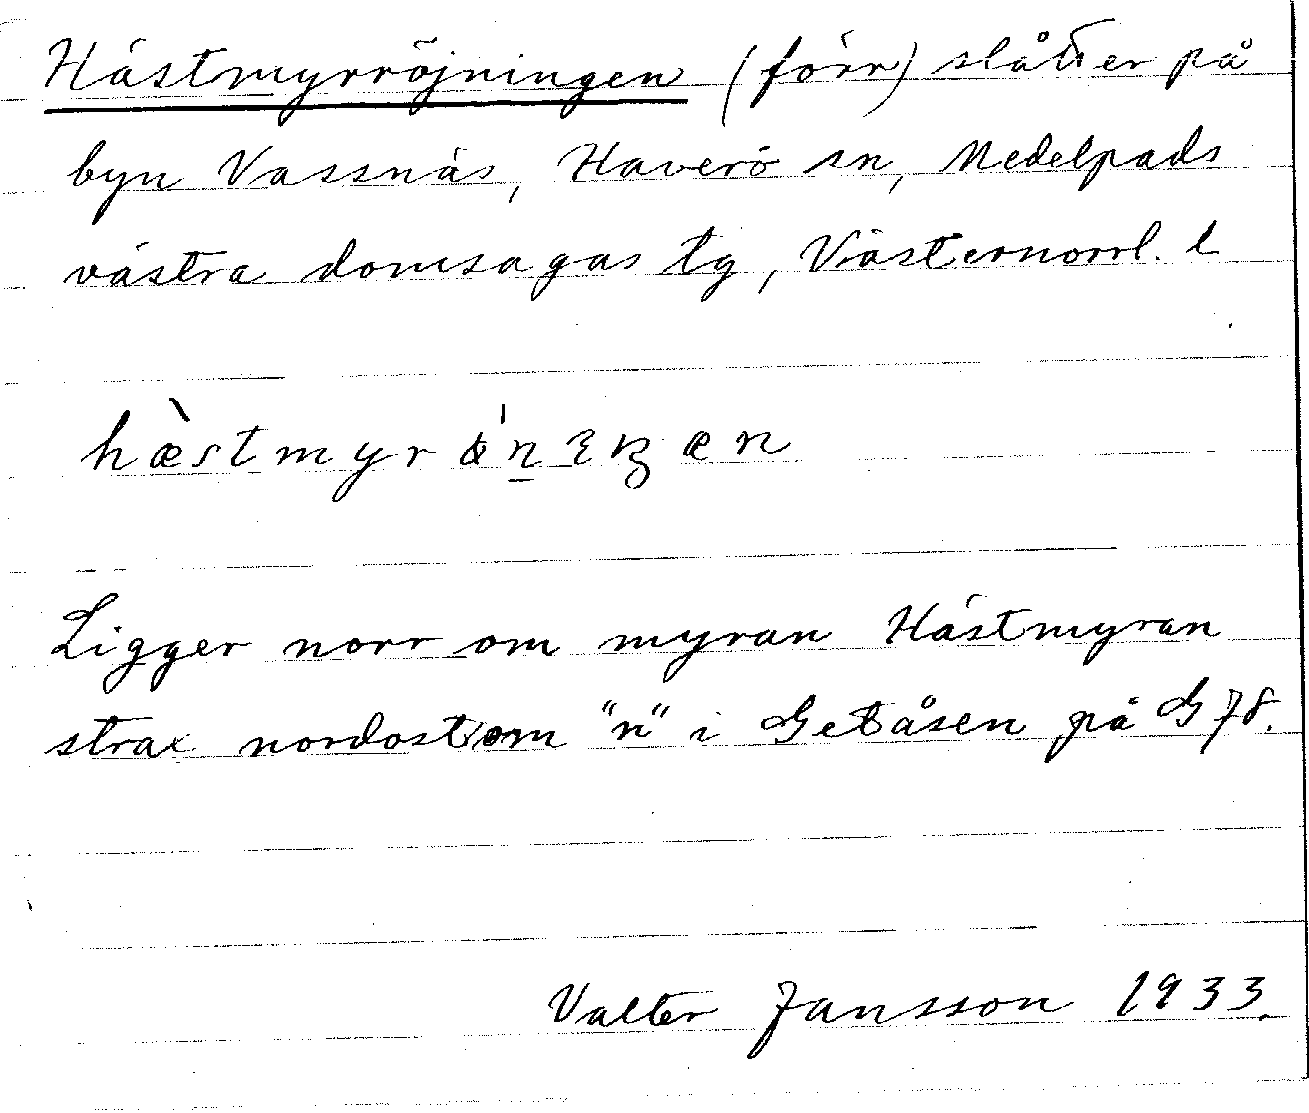 Hästmyrröjningen (förr) slåtter på
byn Vassnäs, Haverö sn, Medelpads
västra domsagas tg, Västernorrl. l
Ligger norr om myran Hästmyran
strax nordost om "n" i Getåsen på G 78.
Valter Jansson 1933.